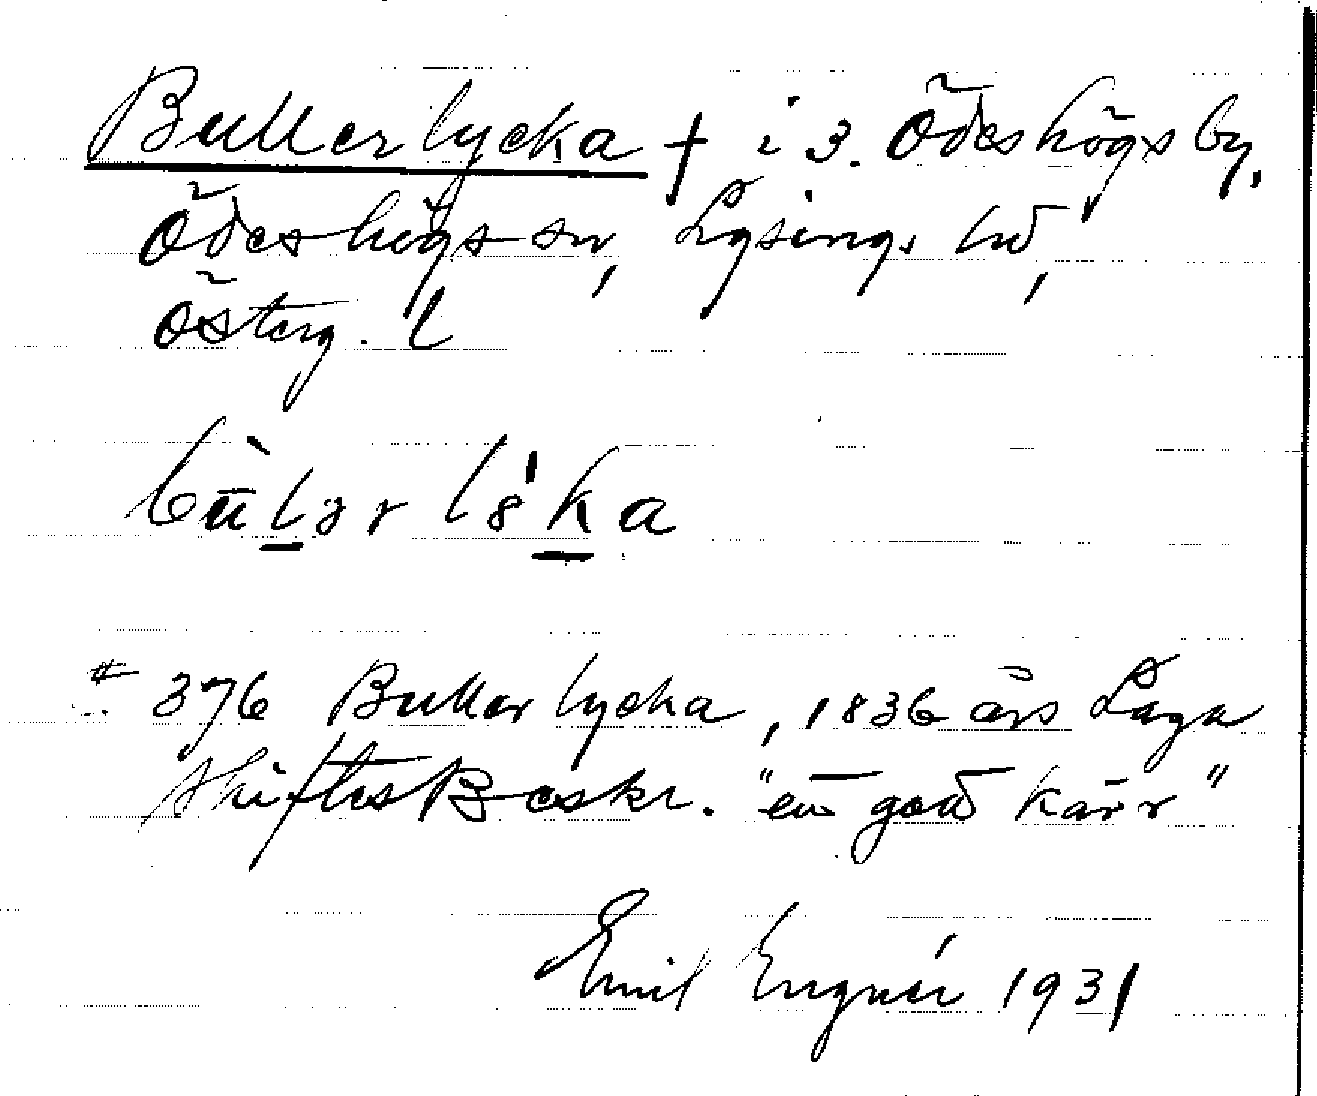 Bullerlycka † i 3. Ödeshögs by,
Ödeshögs sn, Lysings hd,
Österg. l
bu̅̀lər lö'ka
# 376 Bullerlycka, 1836 års Laga
skiftes Beskr. "en god kärr"
Emil Engnér 1931